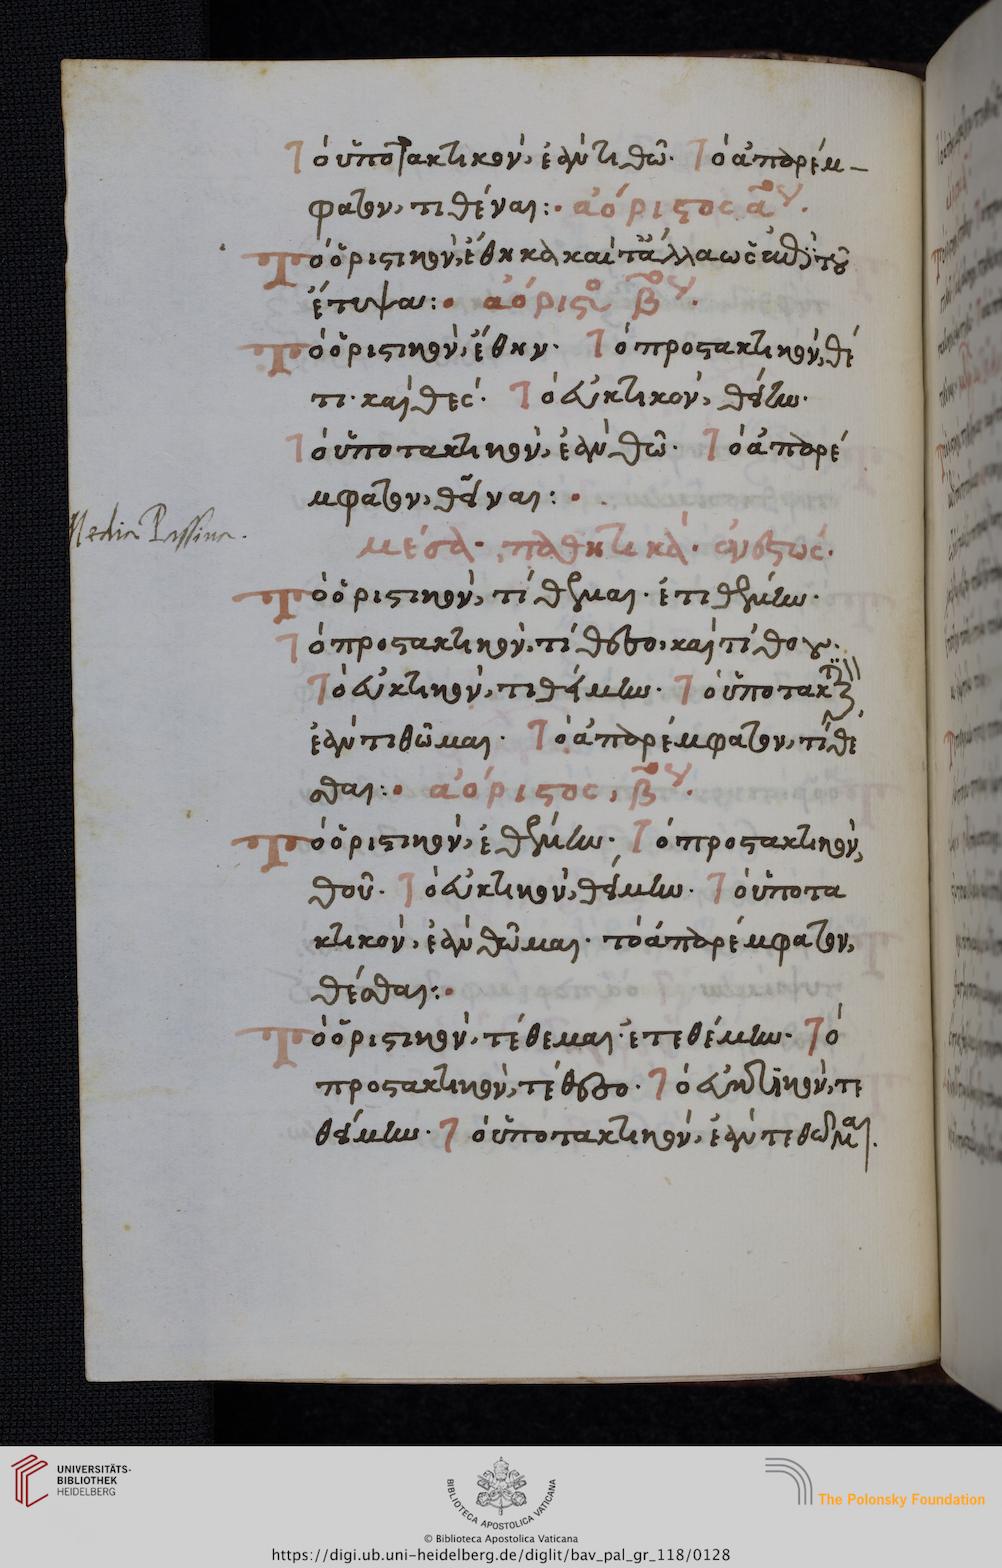 Τὸ ὑποτακτικὸν, ἐὰν τιθῶ. Τὸ ἀπαρέμ-
φατον, τιθέναι: ἀόριστος αου.
Τὸ ὁριστικὸν, ἔθηκα καὶ τἄλλα ὡς ἀπὸ τοῦ
ἔτυψα: ἀόριστου βου.
Τὸ ὁριστικὸν, ἔθην. Τὸ προστακτικὸν, θέ
τι. καὶ θές. Τὸ εὐκτικὸν, θείην.
Τὸ ὑποτακτικὸν, ἐὰν θῶ. Τὸ ἀπαρέ
μφατον, θεῖναι:
Media Passiva.
μέσα. παθητικὰ. ἐνεστώς.
Τὸ ὁριστικὸν, τίθεμαι. ἐτιθέμην.
Τὸ προστακτικὸν, τίθεσο, καὶ τίθου.
Τὸ εὐκτικὸν, τιθείμην. Τὸ ὑποτακτι
ἐὰν τιθῶμαι. Τὸ ἀπαρέμφατον, τίθε
σθαι: ἀόριστος, βου.
Τὸ ὁριστικὸν, ἐθέμην. Τὸ προστακτικὸν,
θοῦ. Τὸ εὐκτικὸν, θείμην. Τὸ ὑποτα
κτικὸν, ἐὰν θῶμαι. τὸ ἀπαρέμφατον,
θέσθαι:
Τὸ ὁριστικὸν, τέθεμαι. ἐτεθέμην. Τὸ
προστακτικὸν, τέθεσο. Τὸ εὐκτικὸν, τε
θείμην. Τὸ ὑποτακτικὸν, ἐὰν τεθῶμαι.
UNIVERSITÄTS-
BIBLIOTHEK
HEIDELBERG
BIBLIOTECA APOSTOLICA VATICANA
The Polonsky Foundation
© Biblioteca Apostolica Vaticana
https://digi.ub.uni-heidelberg.de/diglit/bav_pal_gr_118/0128